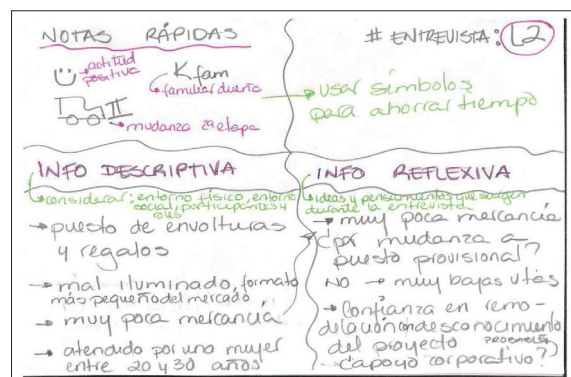 NOTAS RÁPIDAS
actitud
positiva
K fam
familiar dueña
mudanza 2ª etapa
# ENTREVISTA: L2
usar símbolos
para ahorrar tiempo
INFO DESCRIPTIVA
considerar: entorno físico, entorno
social, participantes y
roles
puesto de envolturas
y regalos
mal iluminado, formato
más pequeño del mercado
muy poca mercancía
atendido por una mujer
entre 20 y 30 años
INFO REFLEXIVA
ideas y pensamientos que surgen
durante la entrevista
muy poca mercancía
¿por mudanza a
puesto provisional?
NO → muy bajas vtas
confianza en remo-
delación con desconocimiento
del proyecto
¿apoyo corporativo?